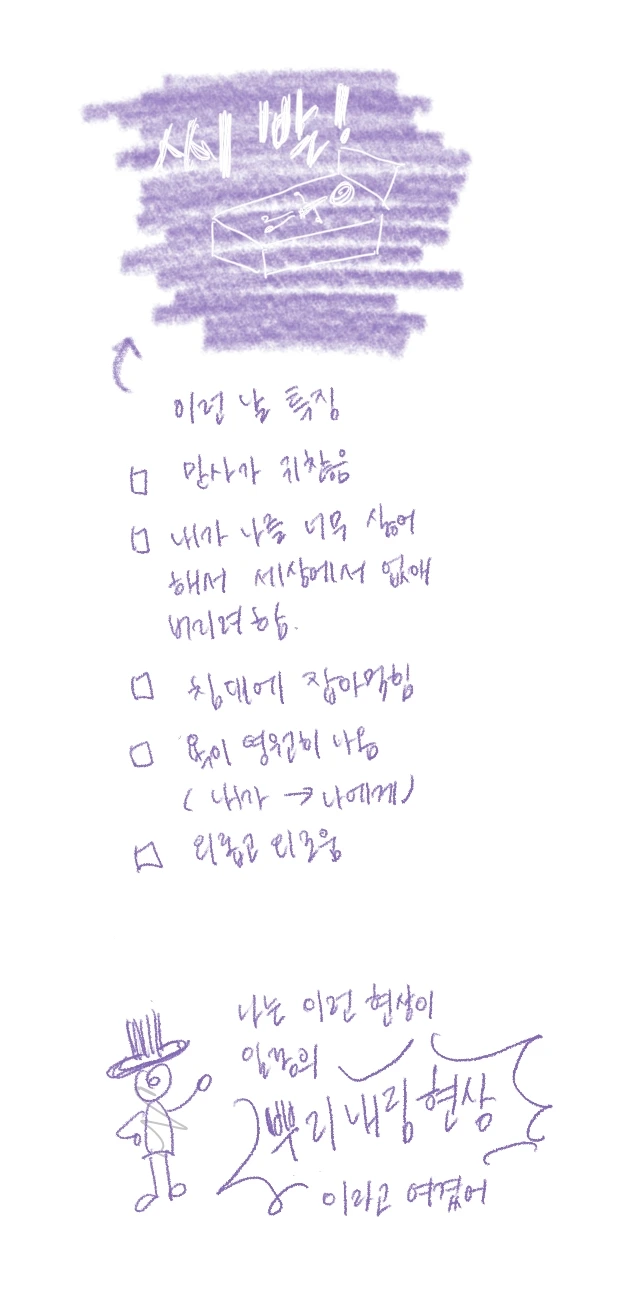 씨발!
이런 날 특징
만사가 귀찮음
내가 나를 너무 싫어
해서 세상에서 없애
버리려 함.
침대에 잡아먹힘
욕이 영원히 나옴
( 내가 → 나에게)
외롭고 외로움
나는 이런 현상이
일종의
뿌리내림현상
이라고 여겼어